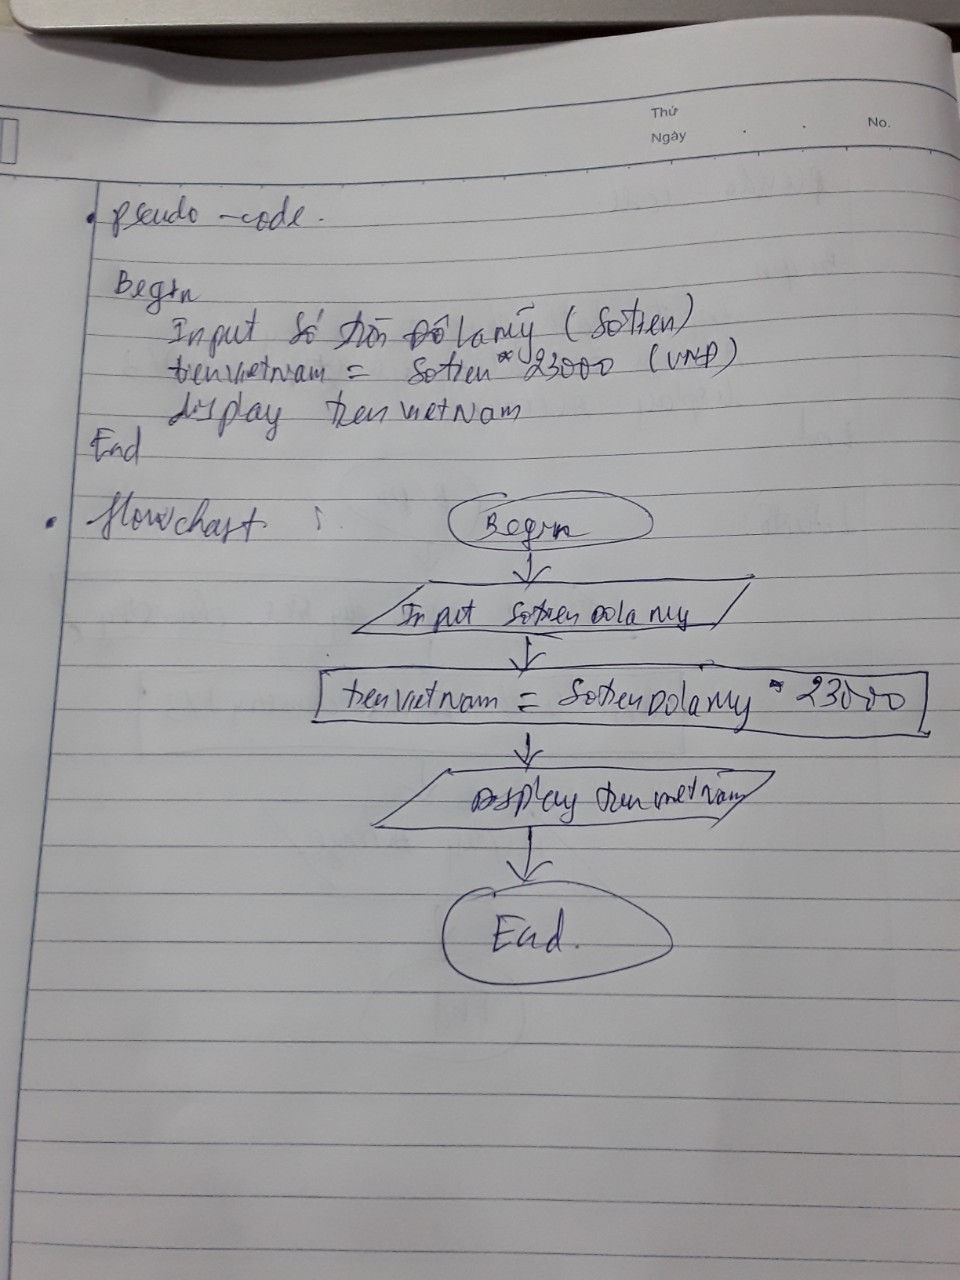 Thứ
Ngày . . No.
pseudo-code.
Begin
Input số tiền Đôlamỹ (sotien)
tienvietnam = sotien * 23000 (VNĐ)
display tienvietnam
End
flowchart :
Begin
Input sotienDolamy
tienvietnam = sotienDolamy * 23000
Display tienvietnam
End.